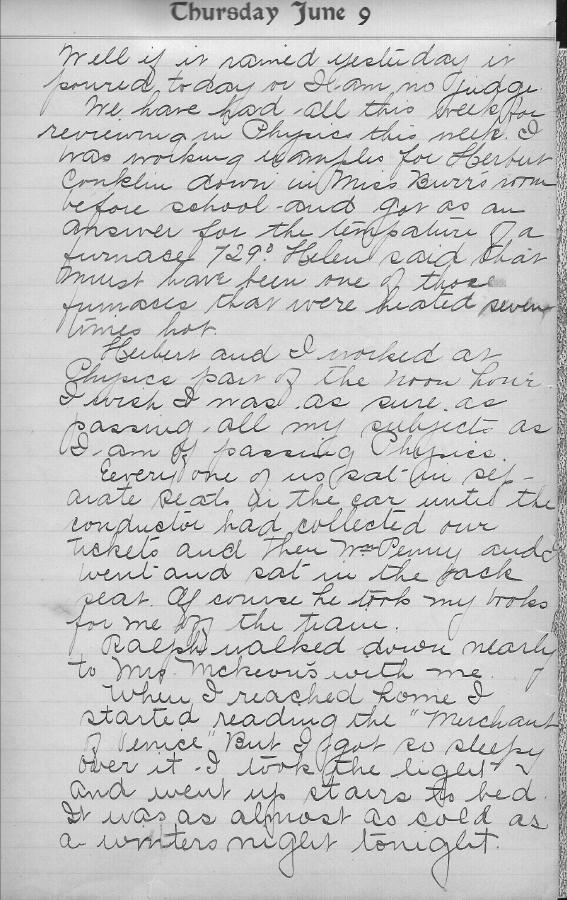 Thursday June 9
Well if it rained yesterday it
poured today or I am no judge.
We have had all this week for
reviewing in Physics this week. I
was working examples for Herbert
Conklin down in Miss Burr's room
before school and got as an
answer for the tempature of a
furnace 729° Helen said that
must have been one of those
furnaces that were heated seven
times hot.
Herbert and I worked at
Physics part of the noon hour.
I wish I was as sure as
passing all my subjects as
I am of passing Physics.
Eevery one of us sat in sep-
arate seats in the car until the
conductor had collected our
tickets and then Wm Penny and I
went and sat in the back
seat. Of course he took my books
for me off the train.
Ralph walked down nearly
to Mrs. McKeon's with me.
When I reached home I
started reading the "Merchant
of Venice" But I got so sleepy
over it I took the light
and went up stairs to bed.
It was as almost as cold as
a winters night tonight.